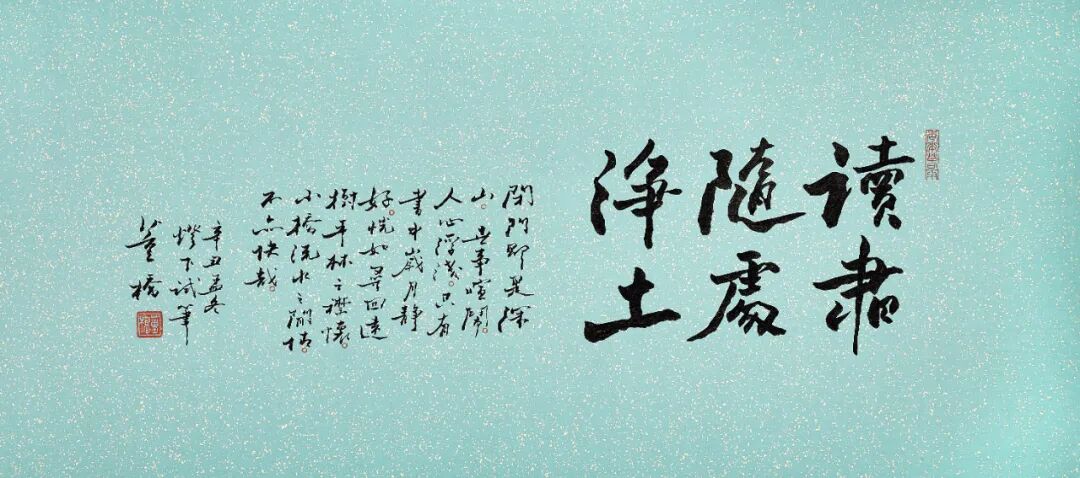 讀書
隨處
淨土
閉門即是深
山。世事喧鬧
人心浮淺。只有
書中歲月靜
好。恍如尋回遠
樹平林之襟懷。
小橋流水之閒情。
不亦快哉。
辛丑孟冬
燈下試筆
董橋